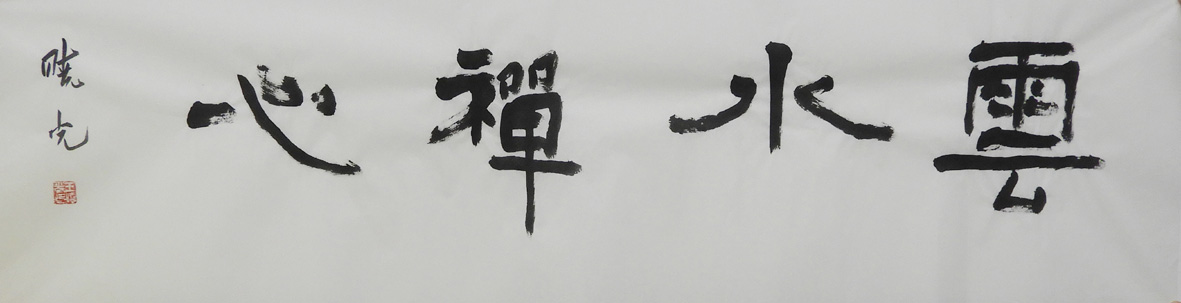 雲水禪心
晓光